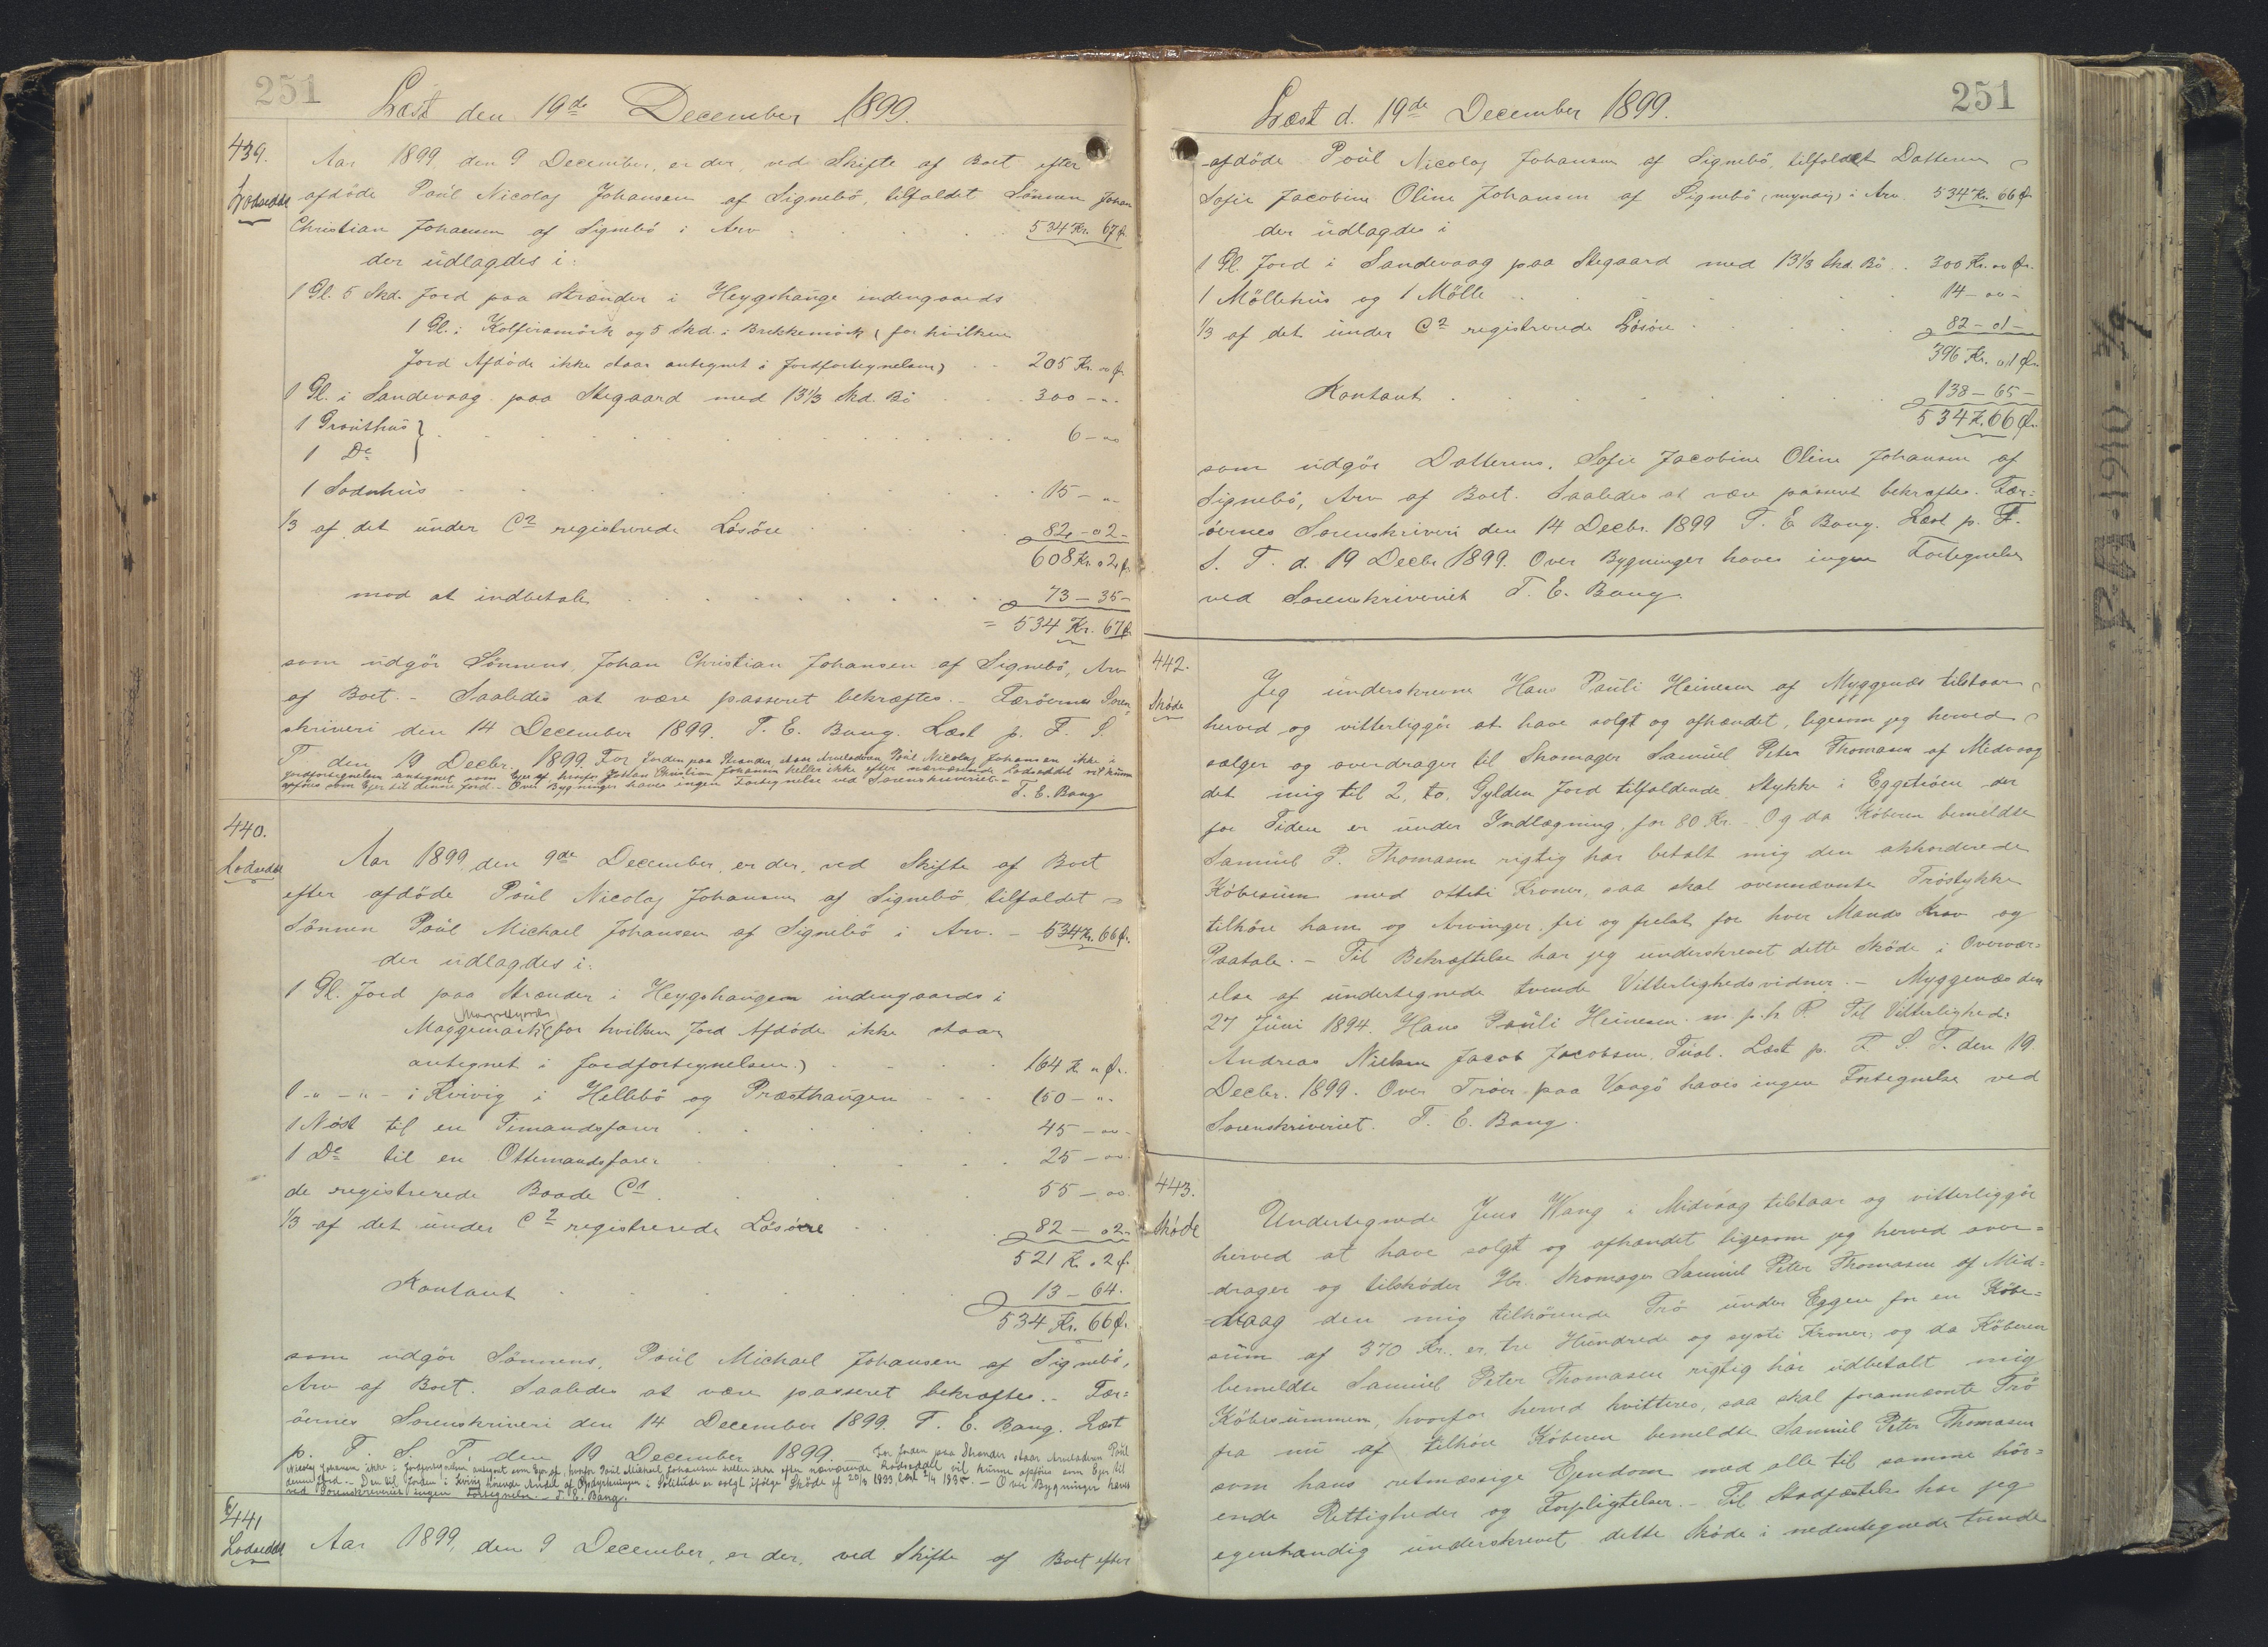 251
Læst den 19de December 1899.
439.
Lodseddel
Aar 1899 den 9 December, er der, ved Skifte af Boet efter
afdöde Poúl Nicolaj Johansen af Signebö, tilfaldet Sönnen Johan
Christian Johansen af Signebö i Arv 534 Kr. 67 Ø.
der údlagdes i:
1 Gl. 5 Skd. Jord paa Strænder i Heygshaúge indengaards
1 Gl. i Kolfiramörk og 5 Skd. i Brekkemörk (for hvilken
Jord Afdöde ikke staar antegnet i Jordfortegnelsen) 205 Kr. " Ø.
1 Gl. i Sandevaag paa Skegaard med 13 1/3 Skd. Bö 300 - " -
1 Groúthús }
1 Do } 6 - "
1 Sodnhús 15 - " -
1/3 af det únder C2 registrerede Lösöre 82 - 02 -
608 Kr. 02 Ø.
mod at indbetale 73 - 35 -
= 534 Kr. 67 Ø.
som údgör Sönnens, Johan Christian Johansen af Signebö, Arv
af Boet. - Saaledes at være passeret bekræftes. - Færöernes Soren-
skriveri den 14 December 1899. T. E. Bang. Læst p. F. S.
T. den 19 Decbr. 1899. For Jorden paa Strænder staar Arveladeren Poúl Nicolaj Johansen ikke i
Jordfortegnelsen antegnet som Ejer af, hvorfor Johan Christian Johansen heller ikke efter nærværende Lodseddel vil kúnne
opföres som Ejer til denne Jord. - Over Bygninger haves ingen Fortegnelse ved Sorenskriveriet. -
T. E. Bang
440.
Lodseddel
Aar 1899 den 9de December, er der, ved Skifte af Boet
efter afdöde Poúl Nicolaj Johansen af Signebö, tilfaldet
Sönnen Poúl Michael Johansen af Signebö i Arv. - 534 Kr. 66 Ø.
der údlagdes i:
1 Gl. Jord paa Strænder i Heygshaúgen indengaards i
Maggemark (for hvilken Jord Afdöde ikke staar
antegnet i Jordfortegnelsen.) 164 Kr. " Ø.
1 - " - " - i Kvivig i Hellebö og Præsthaúgen 150 - " -
1 Nöst til en Timandsfarer 45 - " -
1 Do til en Ottemandsfarer 25 - " -
de registrerede Baade C1 55 - "
1/3 af det únder C2 registrerede Lösöre 82 - 02 -
521 Kr. 02 Ø.
Kontant 13 - 64.
534 Kr. 66 Ø.
som údgör Sönnens, Poúl Michael Johansen af Signebö,
Arv af Boet. Saaledes at være passeret bekræftes. - Fær=
öernes Sorenskriveri den 14 December 1899. T. E. Bang. Læst
p. F. S. T. den 19 December 1899. For Jorden paa Strænder staar Arveladeren Poúl
Nicolaj Johansen ikke i Jordfortegnelsen antegnet som Ejer af, hvorfor Poúl Michael Johansen heller ikke efter nærværende Lodseddel vil kúnne opföres som Ejer til
denne Jord. - Den til Jorden i Kvivig hörende Andel af Opdyrkningen i er solgt ifölge Sköde af 20/3 1833 læst 2/4 1835 - Over Bygninger haves
ved Sorenskriveriet ingen Fortegnelse. - T. E. Bang.
441
Lodseddel
Aar 1899, den 9 December, er der, ved Skifte af Boet efter
251
Læst d. 19de December 1899.
afdöde Poúl Nicolaj Johansen af Signebö, tilfaldet Datteren
Sofie Jacobine Oline Johansen af Signebö (myndig) i Arv. 534 Kr. 66 Ø.
der údlagdes i
1 Gl. Jord i Sandevaag paa Skegaard med 13 1/3 Skd. Bö 300 Kr. " Ø.
1 Möllehús og 1 Mölle 14 - " -
1/3 af det únder C2 registrerede Lösöre 82 - 01 -
396 Kr. 01 Ø.
Kontant 138 - 65 -
534 Kr. 66 Ø.
som údgör Datterens, Sofie Jacobine Oline Johansen af
Signebö, Arv af Boet. Saaledes at være passeret bekræftes. Fær=
öernes Sorenskriveri den 14 Decbr. 1899 T. E. Bang. Læst p. F.
S. T. d. 19 Decbr. 1899. Over Bygninger haves ingen Fortegnelse
ved Sorenskriveriet T. E. Bang.
442.
Sköde
Jeg únderskrevne Hans Paúli Heinesen af Myggenæs tilstaar
herved og vitterliggör at have solgt og afhændet, ligesom jeg herved
sælger og overdrager til Skomager Samúel Peter Thomasen af Midvaag
det mig til 2, to, Gylden Jord tilfaldende Stykke i Eggetröen der
for Tiden er únder Indlægning, for 80 Kr. - Og da Köberen bemeldte
Samúel P. Thomasen rigtig har betalt mig den akkorderede
Köbesúm med otteti Kroner, saa skal ovennævnte Tröstykke
tilhöre ham og Arvinger fri og frelst for hver Mands Krav og
Paatale. - Til Bekræftelse har jeg únderskrevet dette Sköde i Overvær=
else af úndertegnede tvende Vitterlighedsvidner. - Myggenæs den
27 Júni 1894. Hans Paúli Heinesen. m. p. h. P. Til Vitterlighed:
Andreas Nielsen Jacob Jacobsen. Læst p. F. S. T. den 19
Decbr. 1899. Over Tröer paa Vaagö haves ingen Fortegnelse ved
Sorenskriveriet. T. E. Bang.
443.
Sköde
Undertegnede Jens Wang i Midvaag tilstaar og vitterliggör
herved at have solgt og afhændet ligesom jeg herved over=
drager og tilsköder Hr. Skomager Samúel Peter Thomasen af Mid=
=vaag den mig tilhörende Trö únder Eggen for en Köbe=
súm af 370 Kr. er, tre Húndrede og syvti Kroner, og da Köberen
bemeldte Samúel Peter Thomasen rigtig har údbetalt mig
Köbesúmmen, hvorfor herved kvitteres, saa skal forannævnte Trö
fra nú af tilhöre Köberen bemeldte Samúel Peter Thomasen
som hans retmæssige Ejendom med alle til samme hör=
ende Rettigheder og Forpligtelser. - Til Stadfæstelse har jeg
egenhændig únderskrevet dette Sköde i nedentegnede tvende